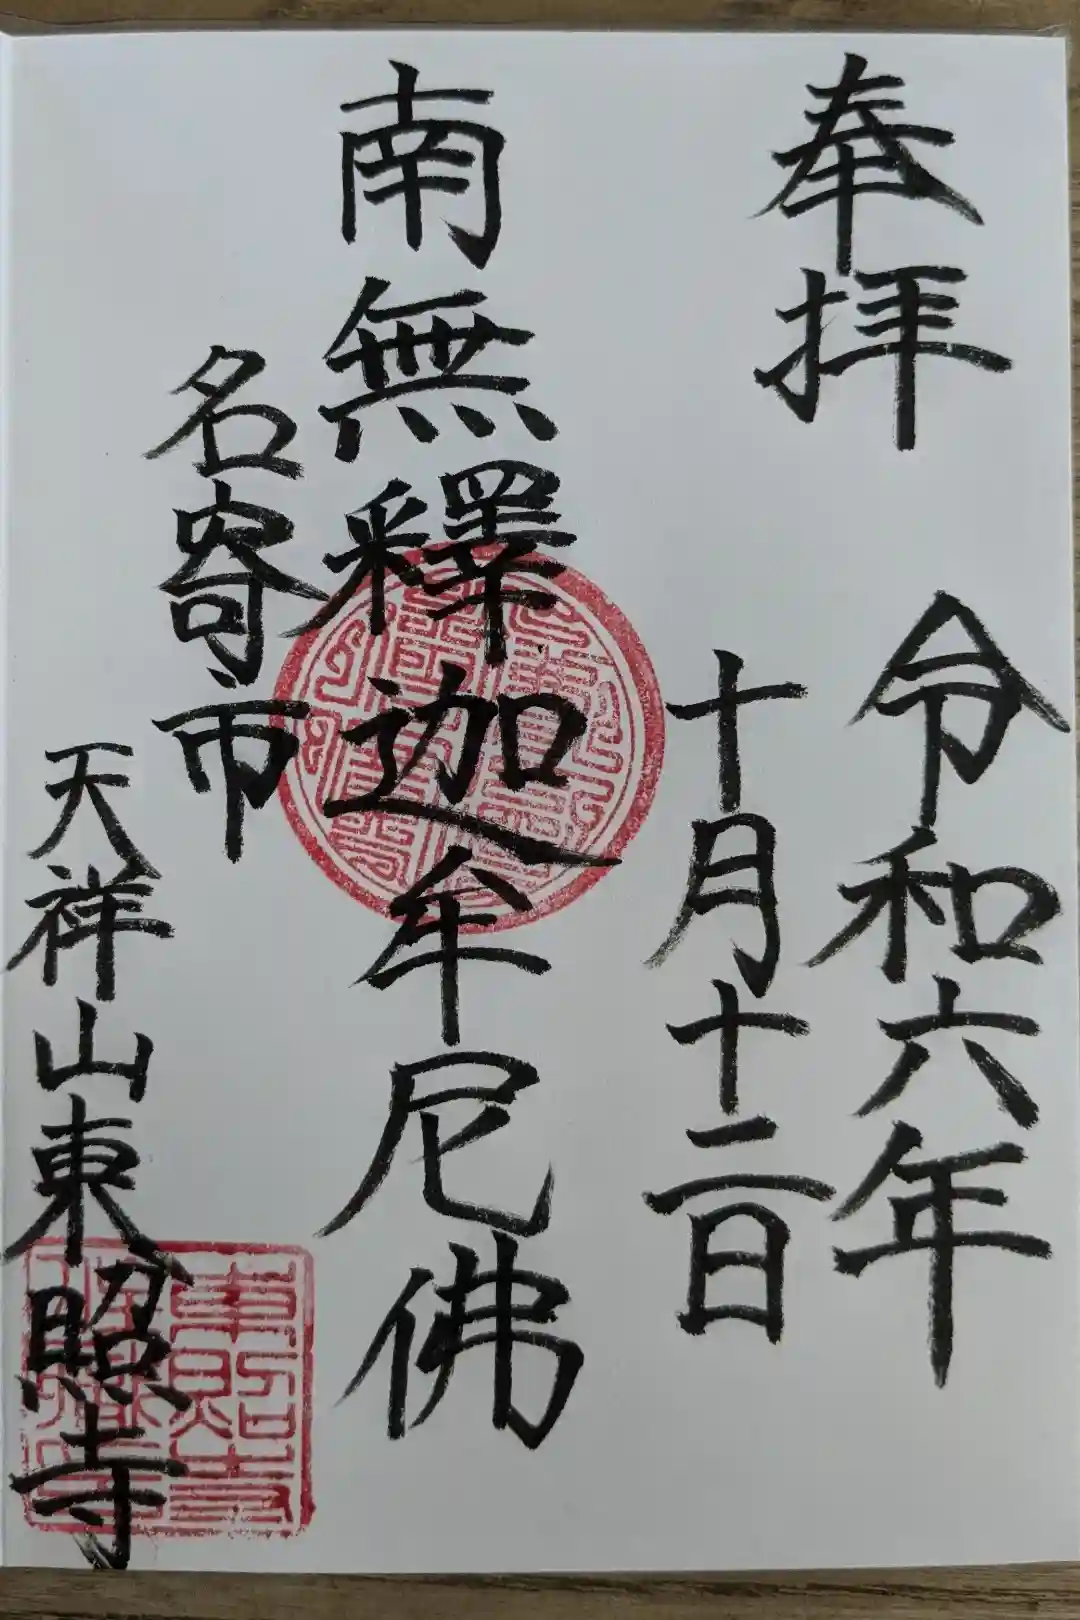 奉拝
令和六年
十月十二日
南無釋迦牟尼佛
名寄市
天祥山東照寺
東照寺